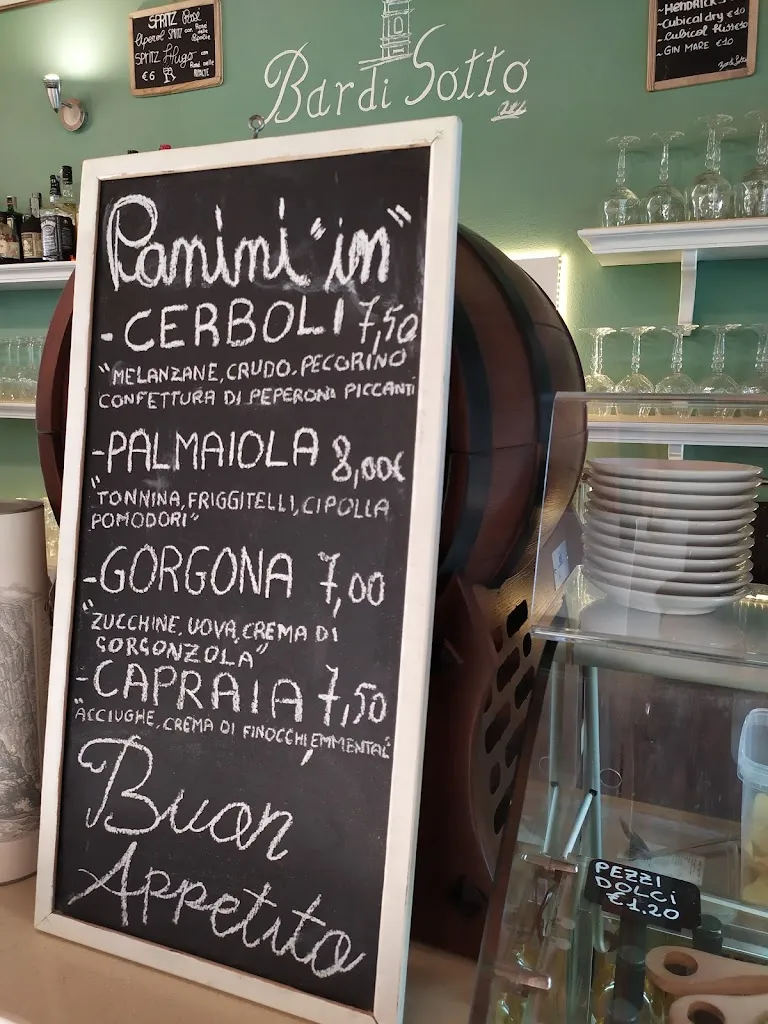 SPRITZ Rosé
Aperol SPRITZ con
SPRITZ Hugo con
€6
Bardi Sotto
-HENDRICK'S
-Cubical dry €10
-Cubical Kiss €10
-GIN MARE €10
Bardi Sotto
Panini "in"
-CERBOLI 7,50
"MELANZANE, CRUDO. PECORINO
CONFETTURA DI PEPERONI PICCANTI
-PALMAIOLA 8,00€
"TONNINA, FRIGGITELLI, CIPOLLA
POMODORI"
-GORGONA 7,00
"ZUCCHINE, UOVA, CREMA DI
GORGONZOLA"
-CAPRAIA 7,50
"ACCIUGHE, CREMA DI FINOCCHI, EMMENTAL"
Buon
Appetito
PEZZI
DOLCI
€1.20